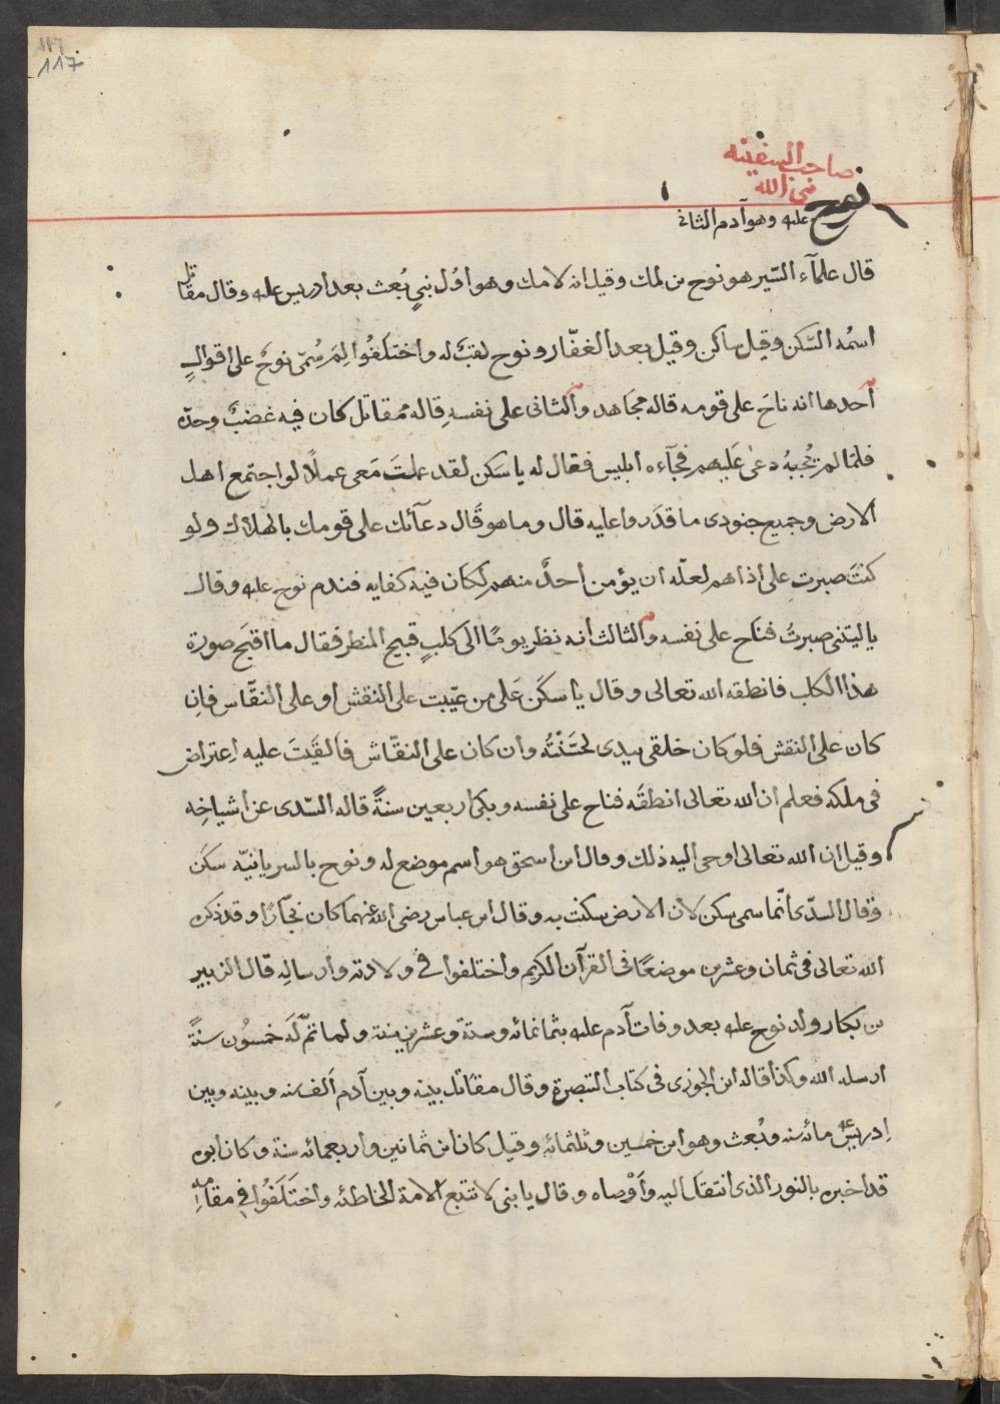 ١١٦
117
صاحب السفينه
نبى الله
نوح عليه وهو آدم الثانى
قال علمآء السّير هو نوح بن لمك وقيل انه لامك وهو اوُل نبيٍ بُعث بعد ادريس عليه وقال مقاتل
اسمُه السّكن وقيل ساكن وقيل بعد الغفّار ونوح لقبٌ له واختلَفُوا لِمَ سُمّى نوحٌ على اقوالٍ
أحدها انه ناحَ على قومه قاله مجَاهد والثانى على نفسهِ قاله مُقاتل كان فيه غضبٌ وحدّه
فلمّا لم تُجبهُ دعىٰ عَليهم فجآءه ابليس فقال له يا سَكن لقد عملتَ مَعى عملًا لو اجتمع اهل
الارض وجميع جنودى ما قدَروا عليه قال وما هو قَال دعآئك على قومك بالهلاك ولو
كنتَ صبرت على اذاهم لعلّه ان يؤمن أحدٌ منهم لكان فيه كفايه فندم نوح عليه وقال
يا ليتنى صبرتُ فناح على نفسه والثالث انه نظر يومًا الى كلبٍ قبيح المنظر فقال ما اقبَح صورة
هذا الكلب فانطقه الله تعالى وقال يا سكَن عَلى من عيّبت على النقش او على النقّاس فاِن
كان على النقش فلو كان خلقى بيدى لحَسَّنتُه وان كان على النقّاش فالقَيتَ عليه اِعتراض
فى ملكه فعلم ان الله تعالى انطقَه فناح على نفسه وبكى اربعين سنةً قاله السّدى عن اشياخِه
وقيل ان الله تعالى اوحى اليه ذلك وقال ابن اسحق هو اسم موضع له ونوح بالسريانيّه سكَن
وقال السدّى انّما سمى سكن لان الارض سكنت به وقال ابن عباس رضى الله عنهما كان نجّارًا وقد ذكره
الله تعالى فى ثمان وعشرين موضعًا فى القرآن الكريم واختلفوا فى ولادته وارسالِه قال الزبير
بن بكار ولد نوح عليه بعد وفات آدم عليه بثمانمائه وستة وعشرين سنة ولما تمّ لَه خمسُون سنةً
ارسله الله وكذا قاله ابن الجوزى فى كتاب التبصرة وقال مقاتل بينه وبين آدم اَلف سنه وبينه وبين
اِدريس مائه سنه وبُعث وهو ابن خمسين وثلثمائه وقيل كان ابن ثمانين واربعمائه سنة وكان ابوه
قد اخبره بالنور الذى انتقَل اليه وأوْصاه وقال يا بنى لا تتبع الامة الخاطئه واختَلَفُوا فى مقامه